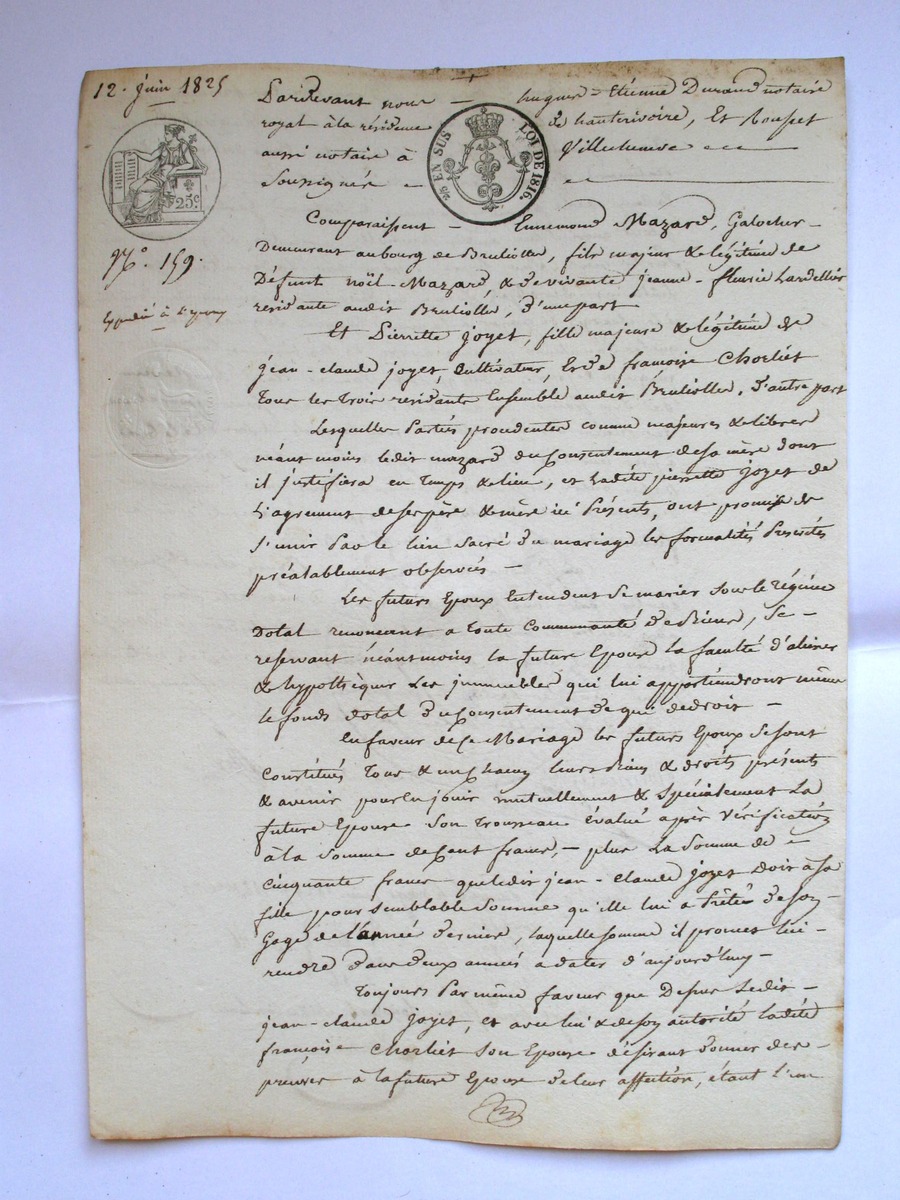 12. juin 1825
25 EN SUS LOI DE 1816.
25c
No. 159.
Expédié à l'époux
Pardevant nous - hugues = Etienne Durand notaire
royal à la résidence de hauterivoire, Et Rouset
aussi notaire à Villechenève
Soussignés
Comparaissent - Ennemond Mazard, Galocher
Demeurant au bourg de Brullioles, fils majeur & légitime de
Défunt noël Mazard, & de vivante jeanne - fleurie Lardellier
residante audit Brullioles, D'une part
Et Pierrette joyet, fille majeure & légitime de
jean-claude joyet, Cultivateur, Et de françoise Chorliet
Tous les Trois residants Ensemble audit Brullioles, D'autre part
Lesquelles Parties procedentes comme majeures & libres
néant moins ledit mazard du Consentement de sa mère dont
il justifiera en Temps & lieu, et Ladite pierrette joyet de
L'agrement de ses père & mère ici Présents, ont promis de
S'unir Par le lien Sacré du mariage les formalités Prescrites
préalablement observées -
Les futurs Epoux Entendent Se marier Sous le Régime
Dotal renoncant a Toute Communauté de Biens, Se -
reservant néantmoins la future Epouse la faculté d'aliener
& hypothéquer Les immeubles qui lui appartiendront même
le fonds dotal du Consentement de qui de droit -
En faveur de Ce Mariage les futurs Epoux Se sont
Constitués Tous & un chacun leurs Biens & droits présents
& avenir pour En jouir mutuellement & Spécialement La
future Epouse Son Trousseau évalué après Vérification
à la Somme de Cent francs, - plus La Somme de =
Cinquante francs que ledit jean-claude joyet Doit à sa
fille pour Semblable Somme qu'elle lui a Prêtée de Son
Gage de l'année Derniere, laquelle somme il promet lui -
rendre Dans Deux années a dater d'aujourd'huy -
Toujours Par même faveur que Dessus Ledit -
jean-claude joyet, et avec lui & de son autorité ladite
françoise Chorliet Son Epouse Désirant Donner des -
preuves à la future Epouse de leur affection, étant L'un